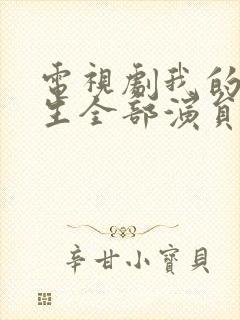 電視劇我的
生全部演員
辛甘小寶貝